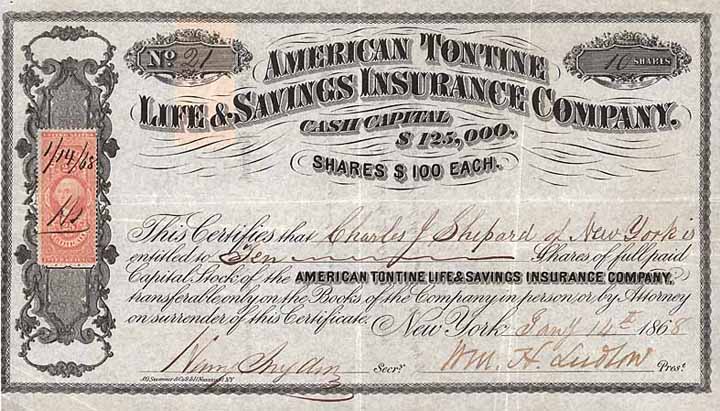 No 21
10 SHARES
AMERICAN TONTINE
LIFE & SAVINGS INSURANCE COMPANY.
CASH CAPITAL
$125,000,
SHARES $100 EACH.
1/14/68
This Certifies that Charles J Shepard of New York is
entitled to Ten Shares of full paid
Capital Stock of the AMERICAN TONTINE LIFE & SAVINGS INSURANCE COMPANY,
transferable only on the Books of the Company in person or by Attorney
on surrender of this Certificate. New York Jany 14th 1868
Secy. Wm. H. Ludlow Prest.